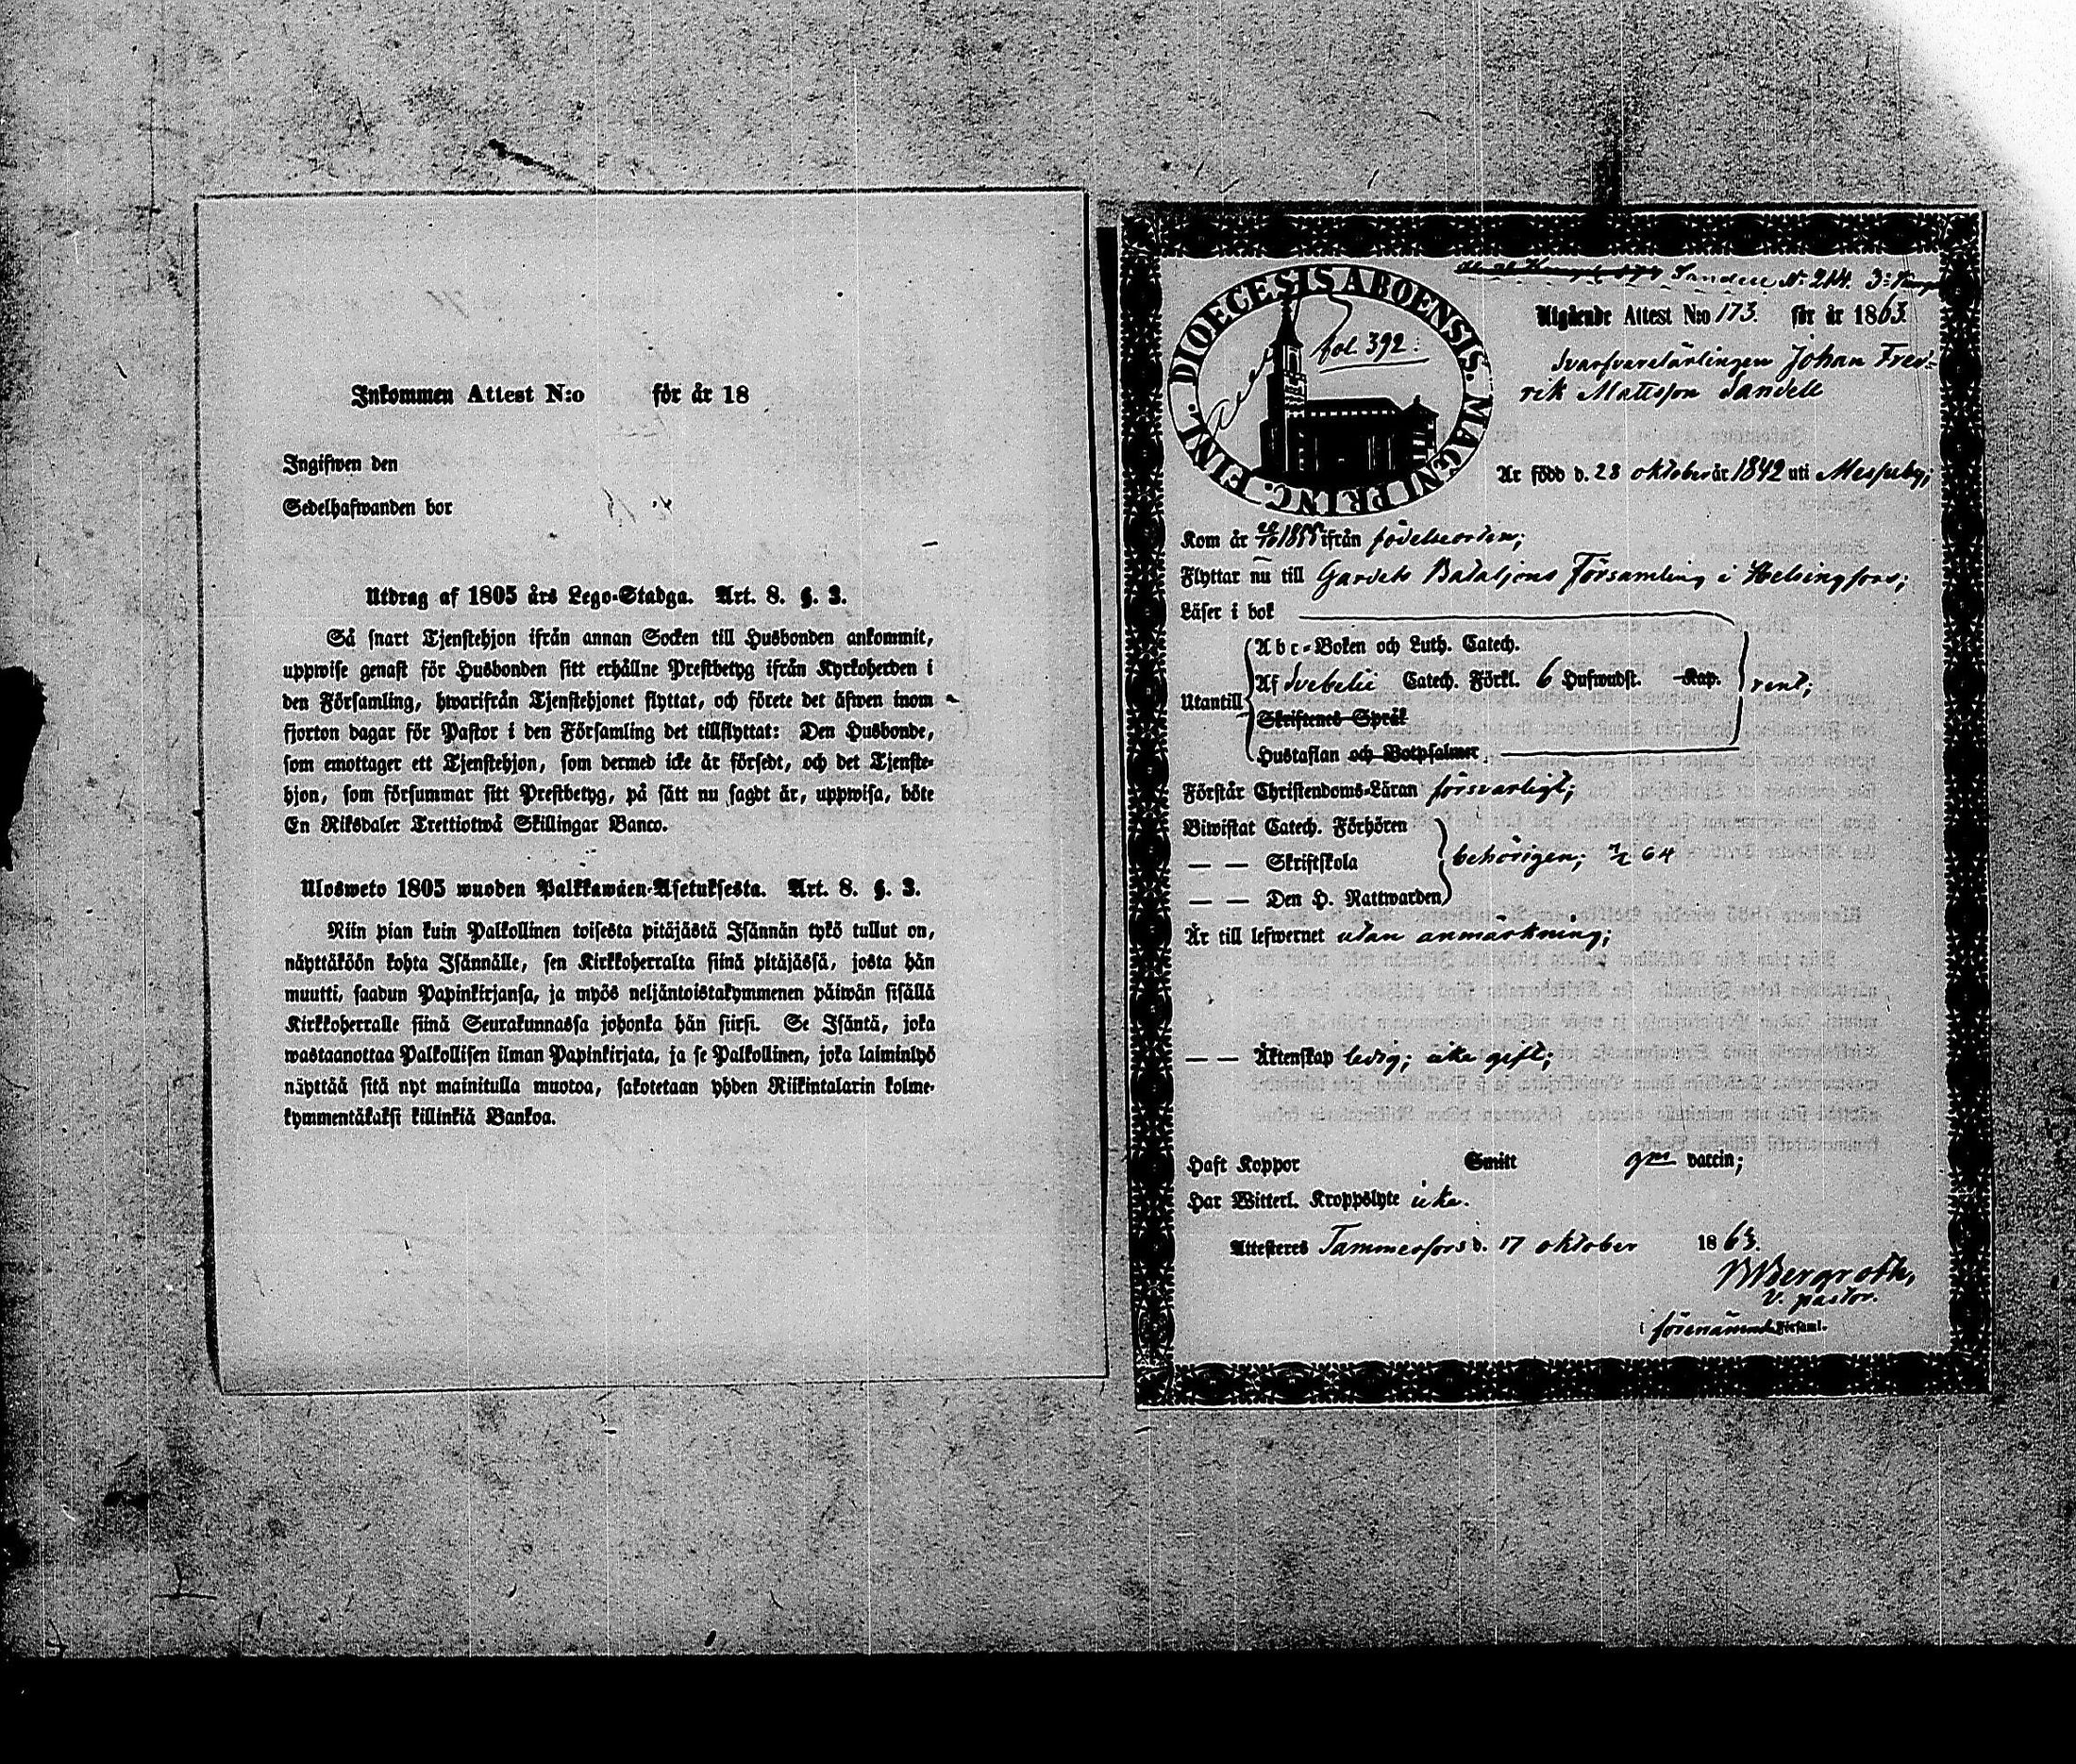 Inkommen Attest N:o för år 18
Ingifwen den
Sedelhafwanden bor
Utdrag af 1805 års Lego-Stadga. Art. 8. §. 3.
Så snart Tjenstehjon ifrån annan Socken till Husbonden ankommit,
uppwise genast för Husbonden sitt erhållne Prestbetyg ifrån Kyrkoherden i
den Församling, hwarifrån Tjenstehjonet flyttat, och förete det äfwen inom
fjorton dagar för Pastor i den Församling det tillflyttat: Den Husbonde,
som emottager ett Tjenstehjon, som dermed icke är försedt, och det Tjenste-
hjon, som försummar sitt Prestbetyg, på sätt nu sagdt är, uppwisa, böte
En Riksdaler Trettiotwå Skillingar Banco.
Ulosweto 1805 wuoden Palkkawäen-Asetuksesta. Art. 8. §. 3.
Niin pian kuin Palkollinen toisesta pitäjästä Isännän tykö tullut on,
näyttäköön kohta Isännälle, sen Kirkkoherralta siinä pitäjässä, josta hän
muutti, saadun Papinkirjansa, ja myös neljäntoistakymmenen päiwän sisällä
Kirkkoherralle siinä Seurakunnassa johonka hän siirsi. Se Isäntä, joka
wastaanottaa Palkollisen ilman Papinkirjata, ja se Palkollinen, joka laiminlyö
näyttää sitä nyt mainitulla muotoa, sakotetaan yhden Riikintalarin kolme-
kymmentäkaksi killinkiä Bankoa.
Sandell N: 214. 3:
DIOECESIS ABOENSIS. MAGNI PRINC. FINL.
fol. 392.
Utgående Attest N:o 173. för år 1863.
Svarfvarelärlingen Johan Fred-
rik Mattsson Sandell
Är född d. 28 oktober år 1842 uti Messuby;
Kom år 1855 ifrån födelseorten;
Flyttar nu till Gardets Bataljons Församling i Helsingfors;
Läser i bok
Abc-Boken och Luth. Catech.
Utantill Af Svebelii Catech. Förkl. 6 Hufwudst. Kap. rent;
Skriftenes Språk
Hustaflan och Botpsalmer
Förstår Christendoms-Läran försvarligt;
Biwistat Catech. Förhören
— — Skriftskola behörigen; 64
— — Den H. Nattwarden
Är till lefwernet utan anmärkning;
— — Äktenskap ledig; icke gift;
Haft Koppor Smitt gm vaccin;
Har Witterl. Kroppslyte icke.
Attesteres Tammerfors d. 17 oktober 1863.
Bergroth,
v. pastor.
i förenämnde Församl.